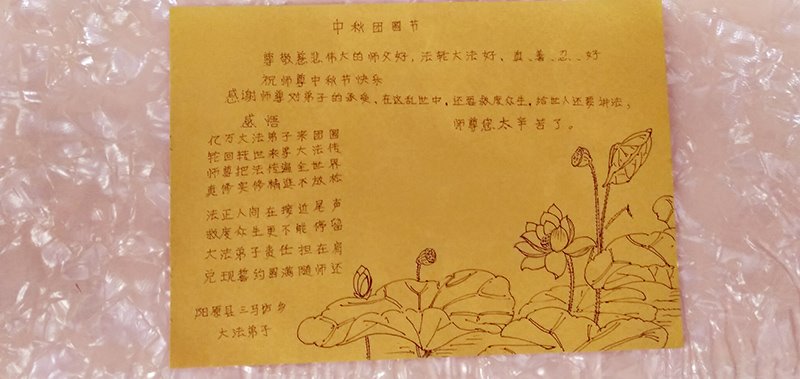 中秋团圆节
尊敬慈悲伟大的师父好，法轮大法好、真、善、忍、好
祝师尊中秋节快乐
感谢师尊对弟子的承受，在这乱世中，还要救度众生，给世人还要讲法，
师尊您太辛苦了。
感悟
亿万大法弟子来团圆
轮回转世来等大法传
师尊把法传遍全世界
真修实修精進不放松
法正人间在接近尾声
救度众生更不能停留
大法弟子责任担在肩
兑现誓约圆满随师还
阳原县三马坊乡
大法弟子